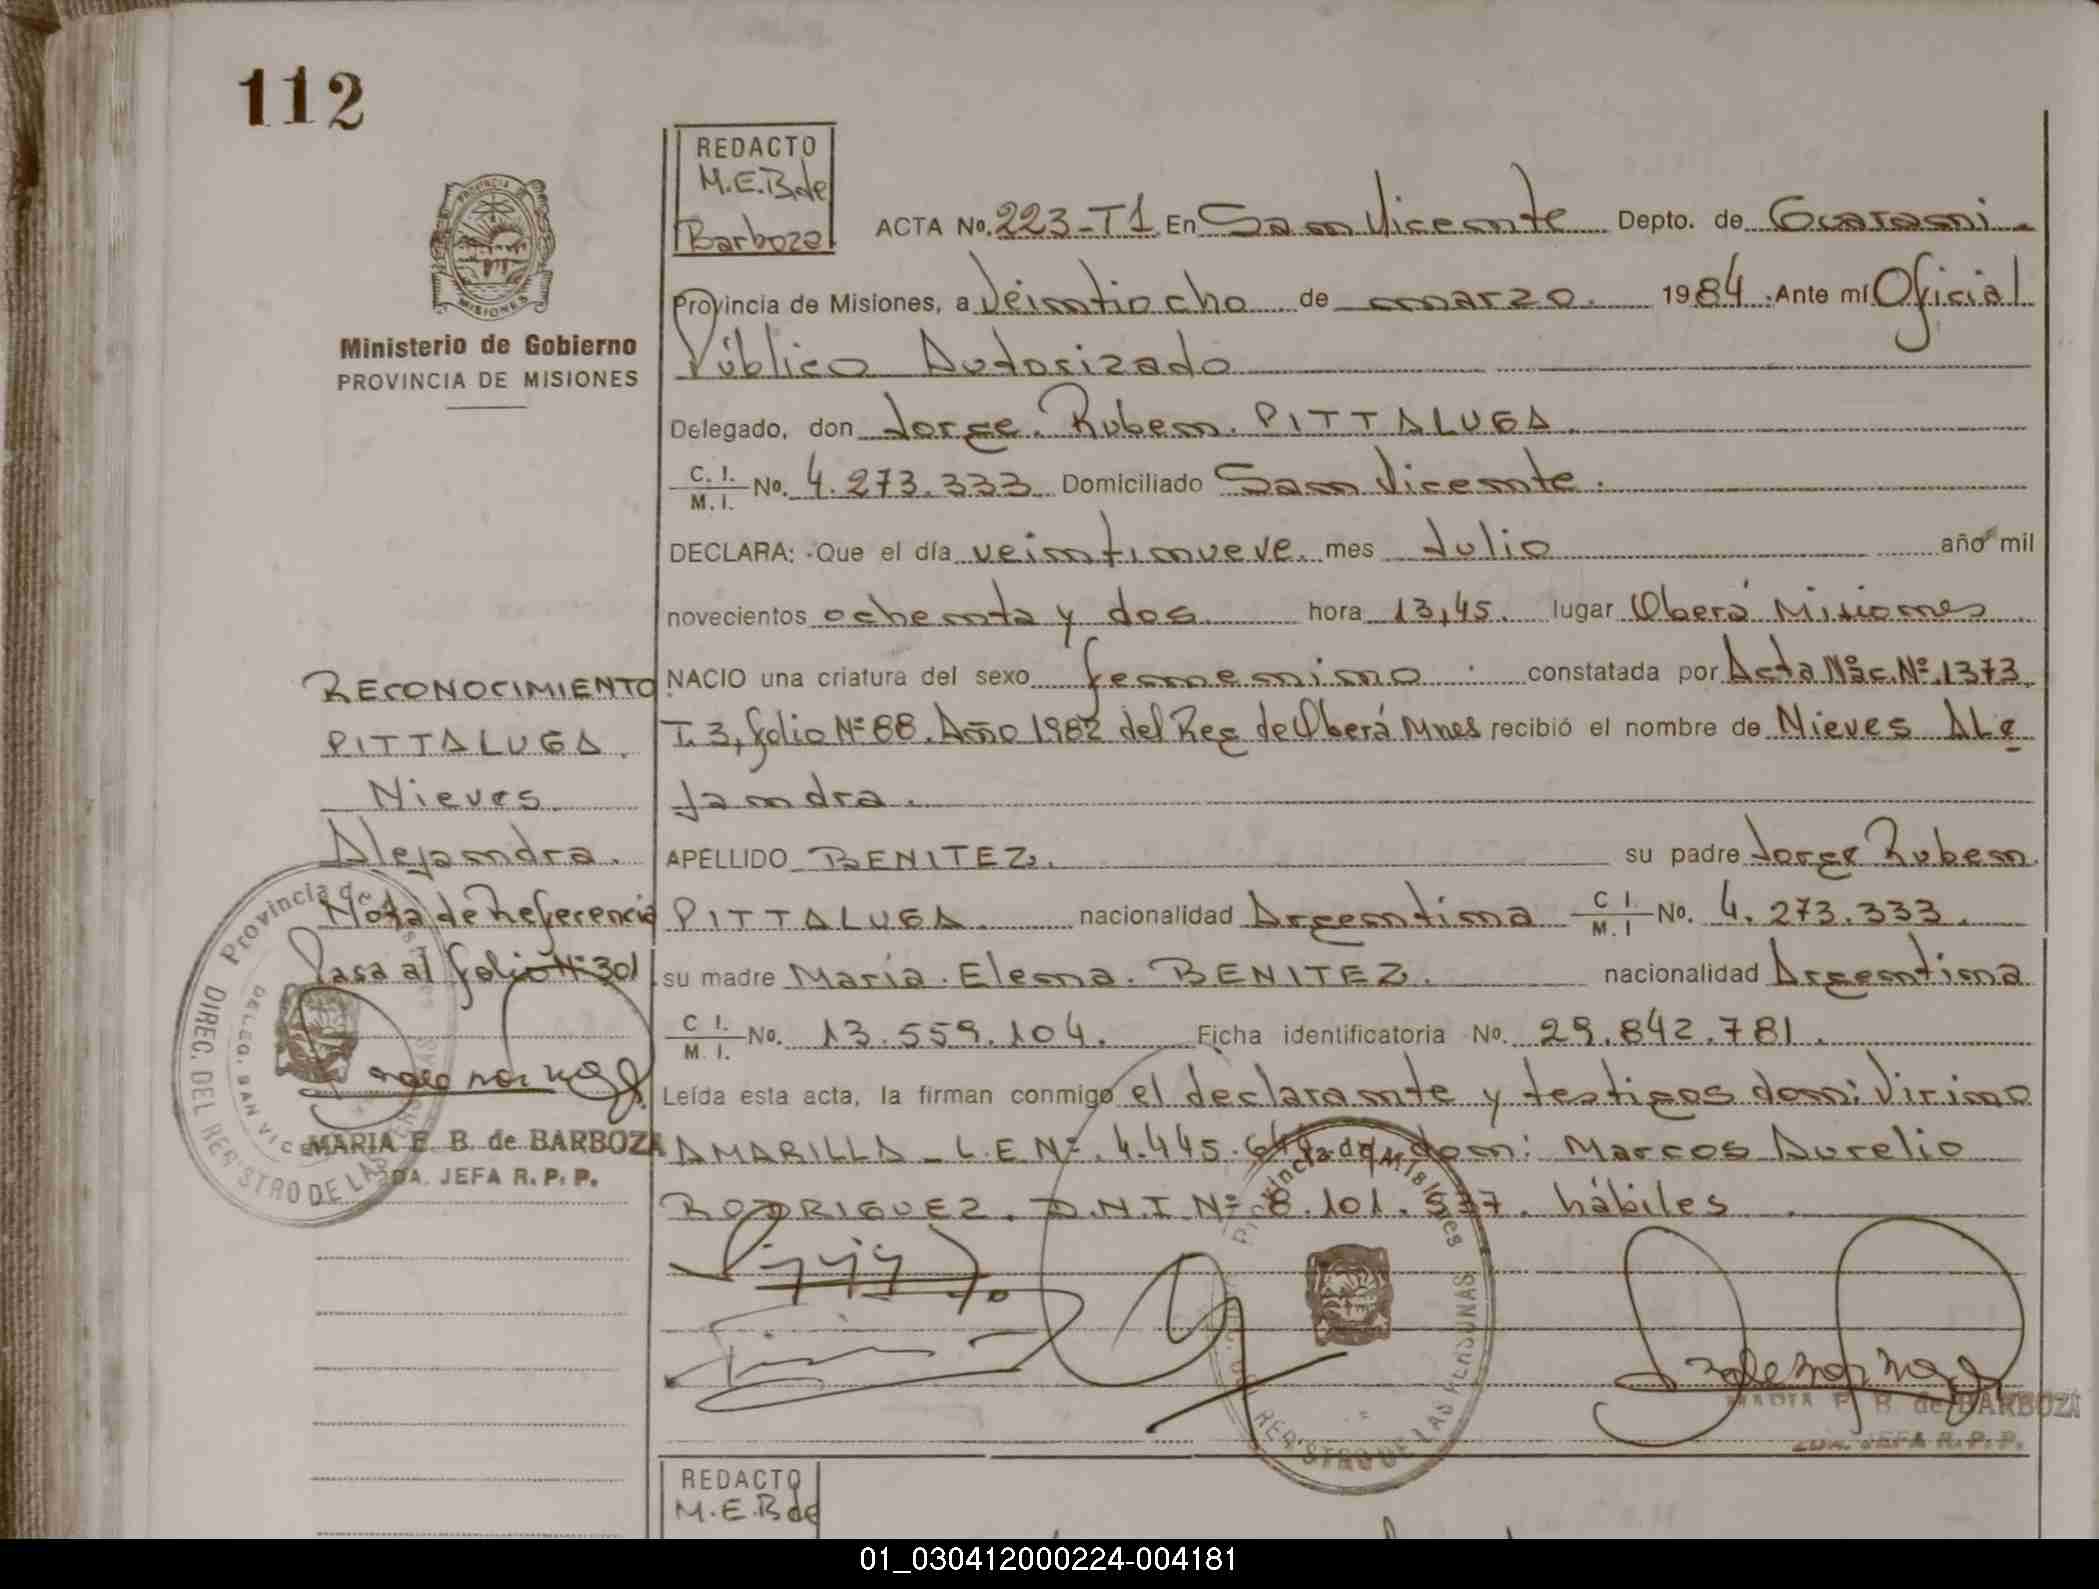 112
REDACTO
M.E.B.de
Barboza
ACTA No. 223-T1 En San Vicente Depto. de Guaraní
Provincia de Misiones, a Veintiocho de marzo. 1984. Ante mí Oficial
Público Autorizado
Delegado, don Jorge Ruben PITTALUGA.
C. I.
M. I. No. 4.273.333 Domiciliado San Vicente.
DECLARA: Que el día veintinueve mes Julio año mil
novecientos ochenta y dos hora 13,45. lugar Oberá Misiones
NACIO una criatura del sexo femenino constatada por Acta Nac. Nº 1373
T. 3, folio Nº 88. Año 1982 del Reg de Oberá Mnes recibió el nombre de Nieves Ale
jandra.
APELLIDO BENITEZ. su padre Jorge Ruben
PITTALUGA. nacionalidad Argentina C I.
M. I No. 4.273.333.
su madre María Elena BENITEZ. nacionalidad Argentina
C I.
M. I. No. 13.559.104. Ficha identificatoria No. 29.842.781.
Leída esta acta, la firman conmigo el declarante y testigos don: Virino
AMARILLA - L.E Nº 4.445. don: Marcos Aurelio
RODRIGUEZ. D.N.I Nº 8.101.537. hábiles
MARIA E. B. de BARBOZA
JEFA R.P.P.
PROVINCIA DE
MISIONES
Ministerio de Gobierno
PROVINCIA DE MISIONES
RECONOCIMIENTO
PITTALUGA.
Nieves
Alejandra.
Nota de Referencia
Pasa al folio Nº 301
MARIA E. B. de BARBOZA
DA. JEFA R. P. P.
Provincia de
DIREC. DEL REGISTRO DE LAS
DELEG. SAN VIC
Provincia de Misiones
REGISTRO DE LAS PERSONAS
REDACTO
M.E.B de
01_030412000224-004181